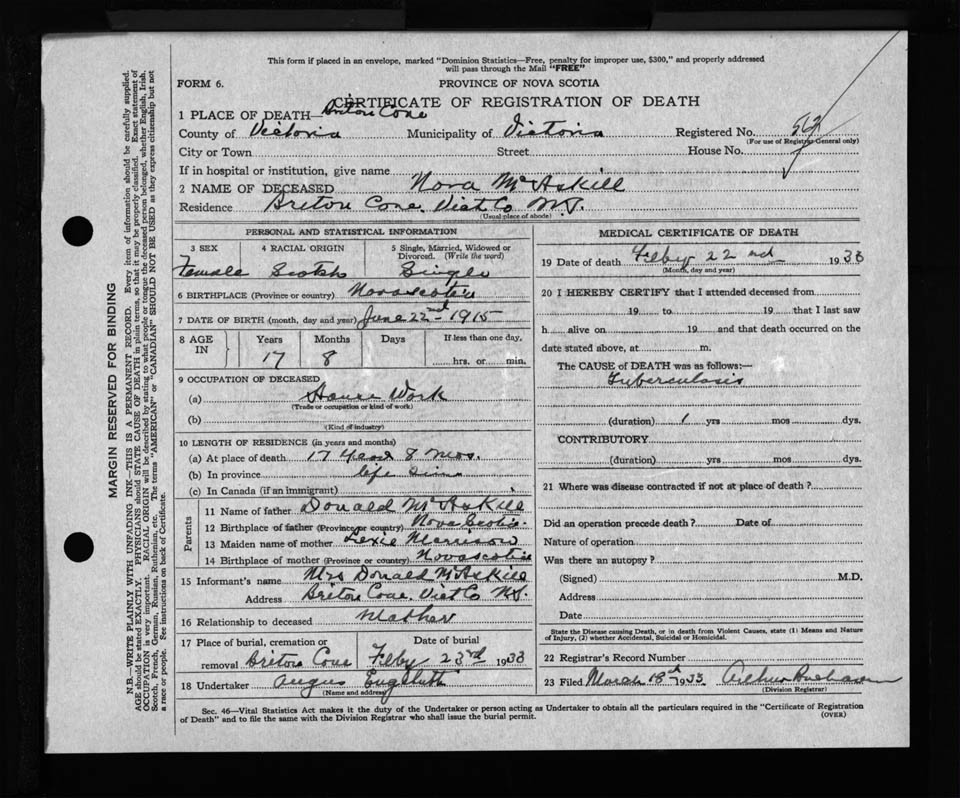 This form if placed in an envelope, marked "Dominion Statistics—Free, penalty for improper use, $300," and properly addressed
will pass through the Mail "FREE"
FORM 6. PROVINCE OF NOVA SCOTIA
CERTIFICATE OF REGISTRATION OF DEATH
1 PLACE OF DEATH Briton Cove
County of Victoria Municipality of Victoria Registered No.
(For use of Registrar-General only)
City or Town Street House No.
If in hospital or institution, give name
2 NAME OF DECEASED Nora McAskill
Residence Briton Cove Vict Co N.S.
(Usual place of abode)
PERSONAL AND STATISTICAL INFORMATION
3 SEX 4 RACIAL ORIGIN 5 Single, Married, Widowed or Divorced. (Write the word)
Female Scotch Single
6 BIRTHPLACE (Province or country) Nova scotia
7 DATE OF BIRTH (month, day and year) June 22nd - 1915
8 AGE IN Years Months Days If less than one day,
17 8 hrs. or min.
9 OCCUPATION OF DECEASED
(a) House Work
(Trade or occupation or kind of work)
(b)
(Kind of industry)
10 LENGTH OF RESIDENCE (in years and months)
(a) At place of death 17 years 8 Mos.
(b) In province life time
(c) In Canada (if an immigrant)
Parents
11 Name of father Donald McAskill
12 Birthplace of father (Province or country) Nova Scotia
13 Maiden name of mother Lexie Morrison
14 Birthplace of mother (Province or country) Nova scotia
15 Informant's name Mrs Donald McAskill
Address Briton Cove Vict Co N.S.
16 Relationship to deceased Mother
17 Place of burial, cremation or Date of burial
removal Briton Cove Feby 23rd 1933
18 Undertaker Angus
(Name and address)
MEDICAL CERTIFICATE OF DEATH
19 Date of death Feby 22nd 1933
(Month, day and year)
20 I HEREBY CERTIFY that I attended deceased from
19 to 19 that I last saw
h alive on 19 and that death occurred on the
date stated above, at m.
The CAUSE of DEATH was as follows:—
Tuberculosis
(duration) 1 yrs mos dys.
CONTRIBUTORY
(duration) yrs mos dys.
21 Where was disease contracted if not at place of death?
Did an operation precede death? Date of
Nature of operation
Was there an autopsy?
(Signed) M.D.
Address
Date
State the Disease causing Death, or in death from Violent Causes, state (1) Means and Nature
of Injury, (2) whether Accidental, Suicidal or Homicidal.
22 Registrar's Record Number
23 Filed March 18th 1933 Arthur Buchanan
(Division Registrar)
Sec. 46—Vital Statistics Act makes it the duty of the Undertaker or person acting as Undertaker to obtain all the particulars required in the "Certificate of Registration
of Death" and to file the same with the Division Registrar who shall issue the burial permit. (OVER)
MARGIN RESERVED FOR BINDING
N.B.—WRITE PLAINLY WITH UNFADING INK—THIS IS A PERMANENT RECORD. Every item of information should be carefully supplied.
AGE should be stated EXACTLY. PHYSICIANS should STATE CAUSE OF DEATH in plain terms, so that it may be properly classified. Exact statement of
OCCUPATION is very important. RACIAL ORIGIN will be described by stating to what people or tongue the deceased person belonged, whether English, Irish,
Scotch, French, German, Russian, Ruthenian, etc. The terms "AMERICAN" or "CANADIAN" SHOULD NOT BE USED as they express citizenship but not
a race or people. See instructions on back of Certificate.